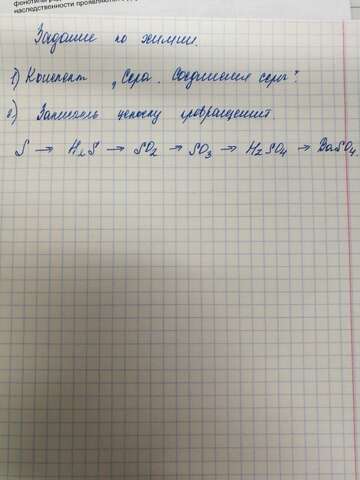 фенотипы ра
наследственности проявляются
Задание по химии.
1) Конспект „Сера. Соединения серы".
2) Записать цепочку превращений.
S → H₂S → SO₂ → SO₃ → H₂SO₄ → BaSO₄.